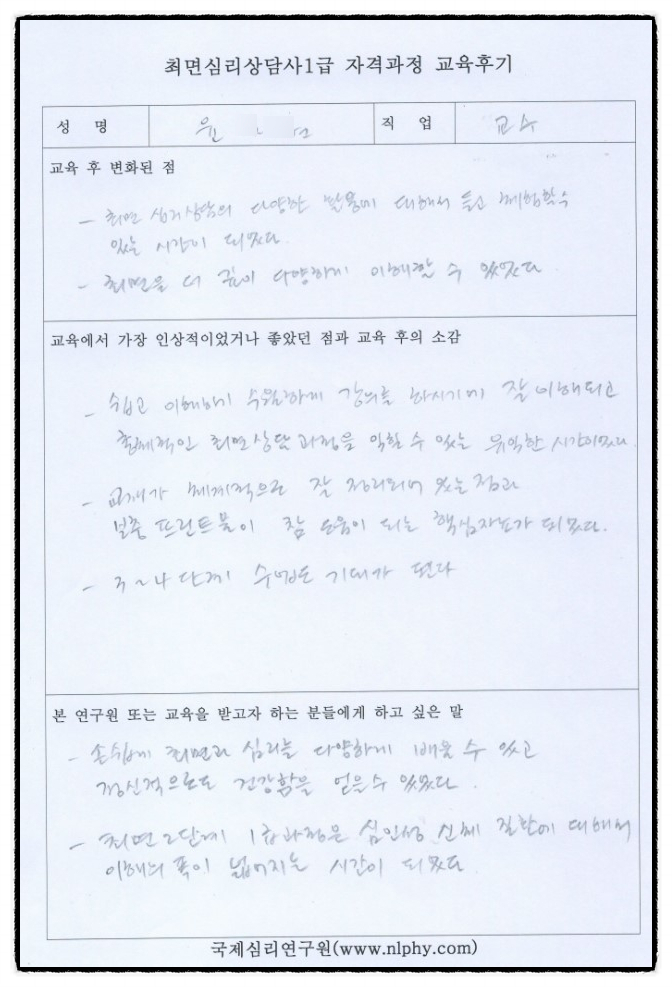 최면심리상담사1급 자격과정 교육후기
성 명 윤 직 업 교수
교육 후 변화된 점
- 최면 심리상담의 다양한 활용에 대해서 듣고 체험할 수
있는 시간이 되었다.
- 최면을 더 깊이 다양하게 이해할 수 있었다
교육에서 가장 인상적이었거나 좋았던 점과 교육 후의 소감
- 쉽고 이해하기 수월하게 강의를 하시기에 잘 이해되고
총체적인 최면상담과정을 익힐 수 있는 유익한 시간이었다.
- 교재가 체계적으로 잘 정리되어 있는 점과
보충 프린트물이 참 도움이 되는 핵심자료가 되었다.
- 3~4단계 수업도 기대가 된다
본 연구원 또는 교육을 받고자 하는 분들에게 하고 싶은 말
- 손쉽게 최면과 심리를 다양하게 배울 수 있고
정신적으로도 건강함을 얻을 수 있었다.
- 최면2단계 1급과정은 심인성 신체 질환에 대해서
이해의 폭이 넓어지는 시간이 되었다.
국제심리연구원(www.nlphy.com)